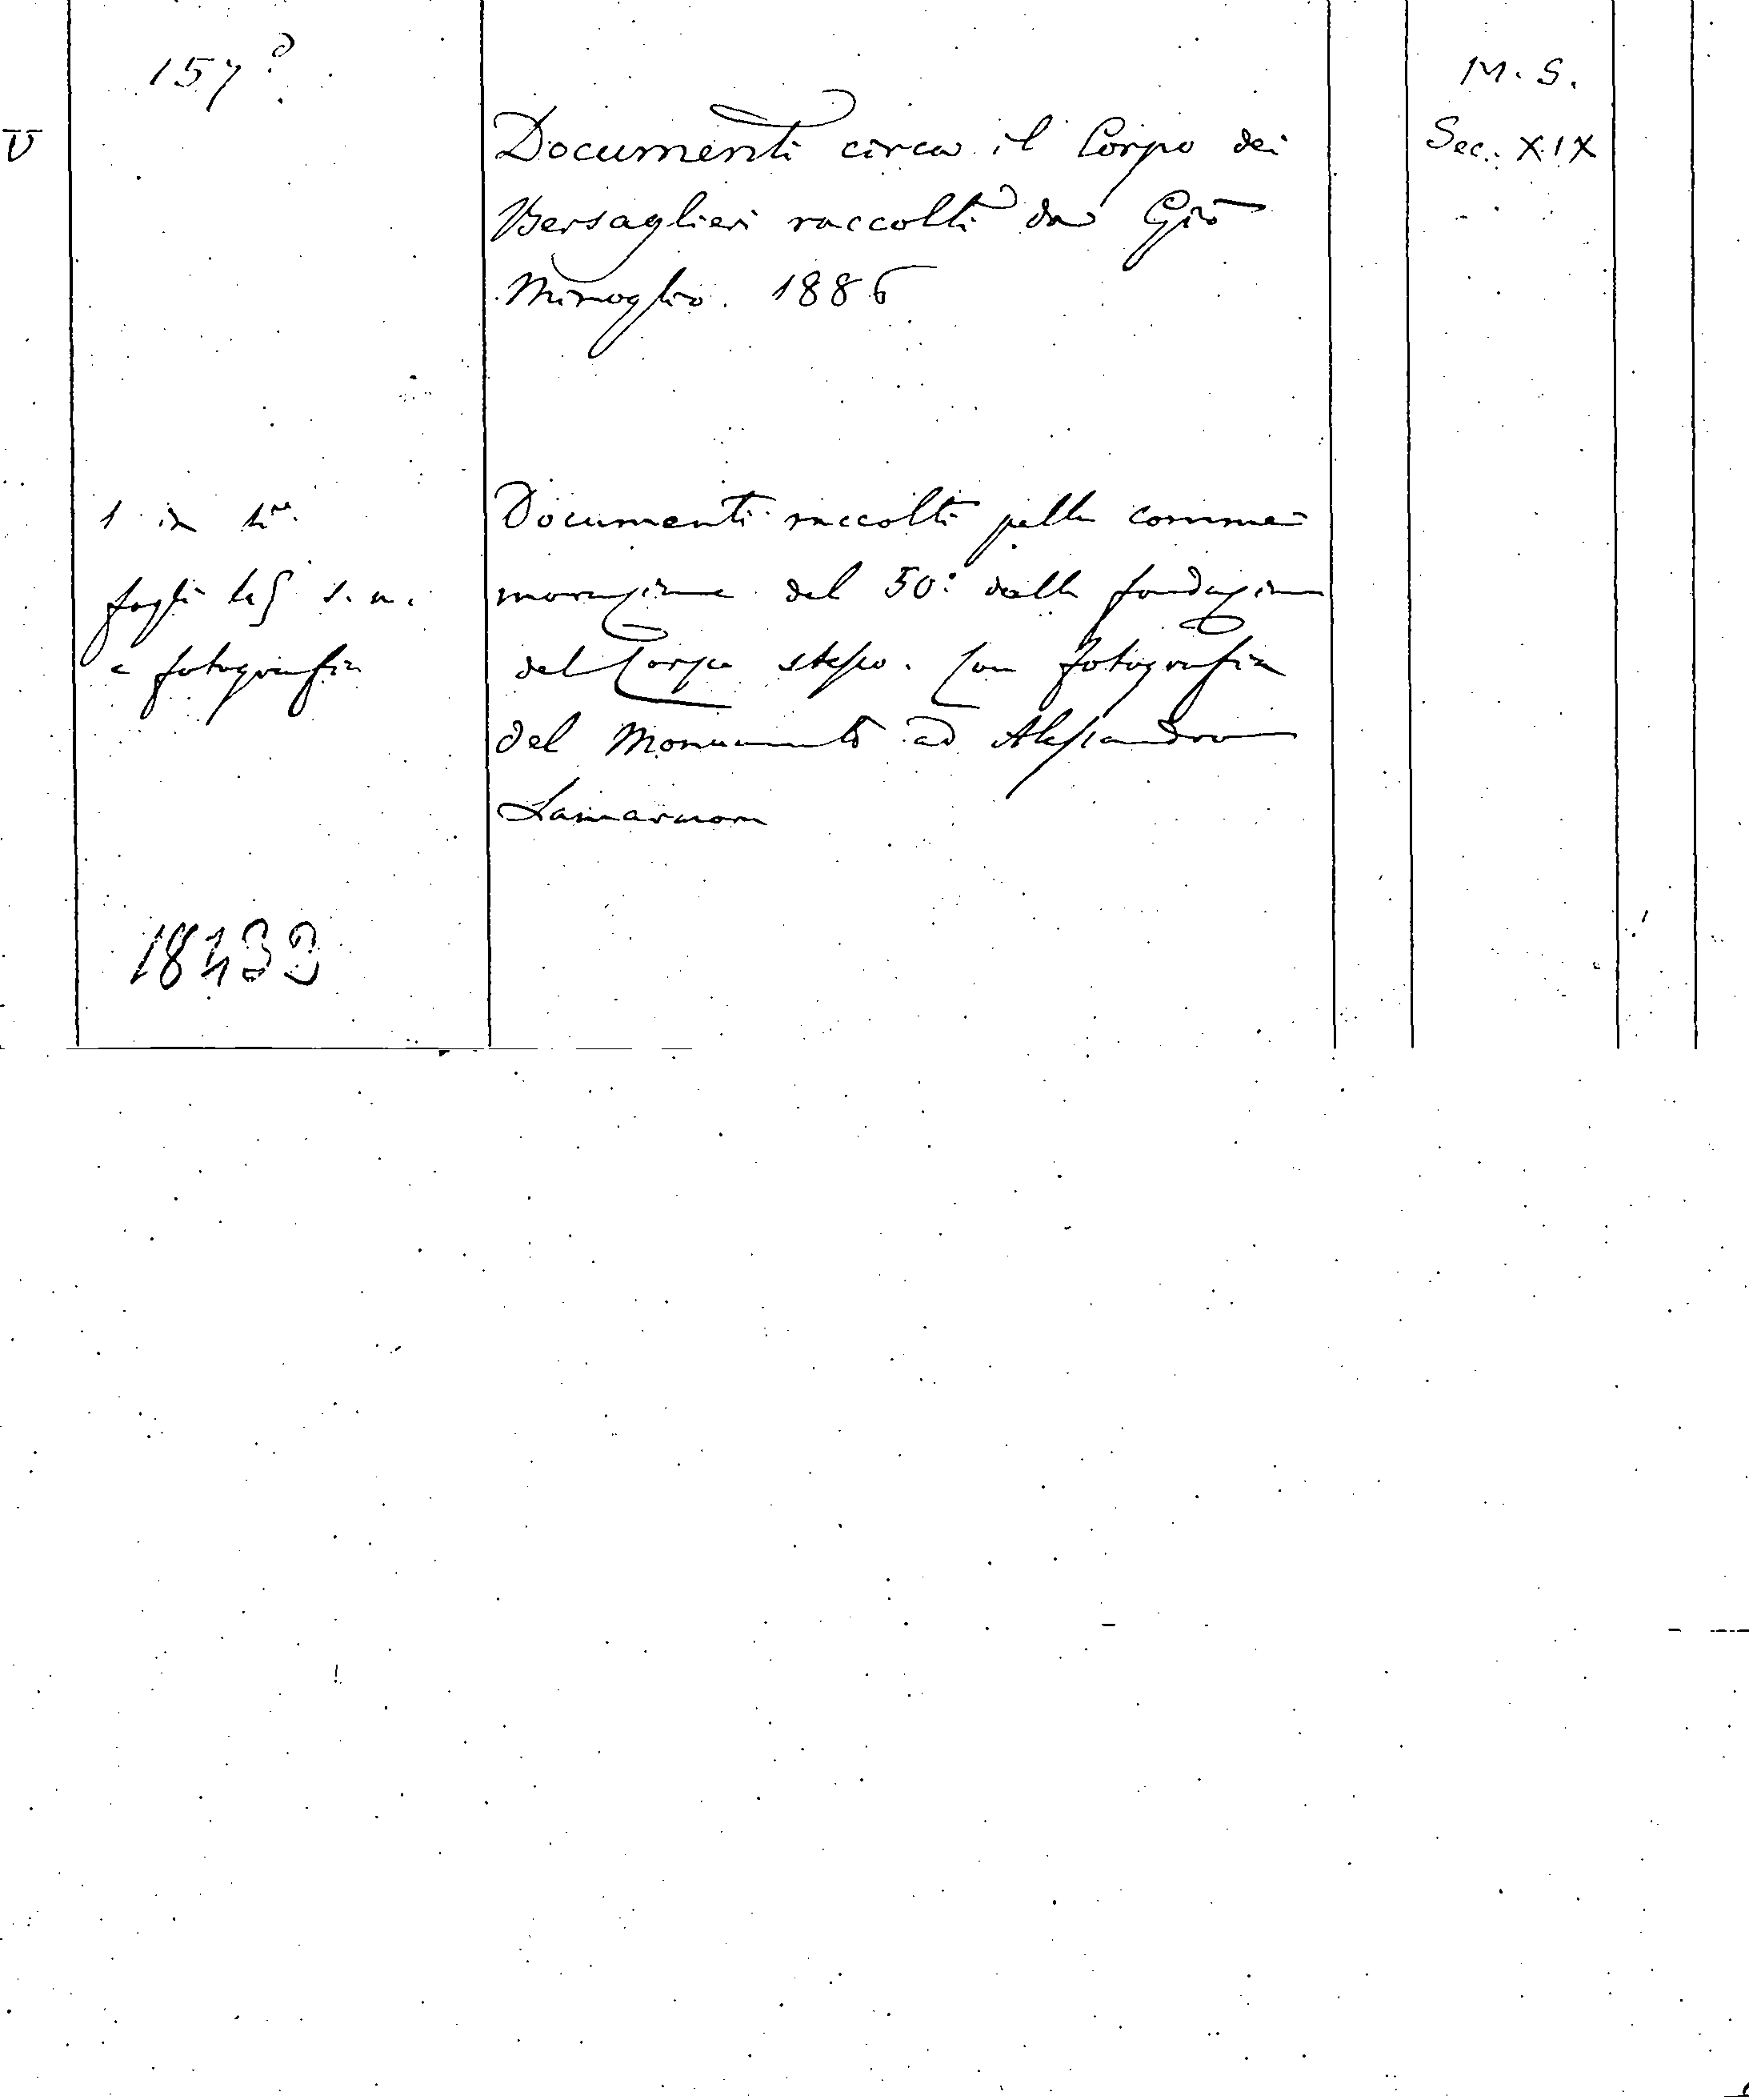 157?
M. S.
V
Documenti circa il Corpo dei
Sec. XIX
Bersaglieri raccolti da Gio
Minoglio. 1886
1 in
Documenti raccolti pella comme
fogli leg s. n.
morazione del 50: dalla fondazione
e fotografia
del Corpo stesso. Con fotografia
del Monumento ad Alessandro
Lamarmora
18433